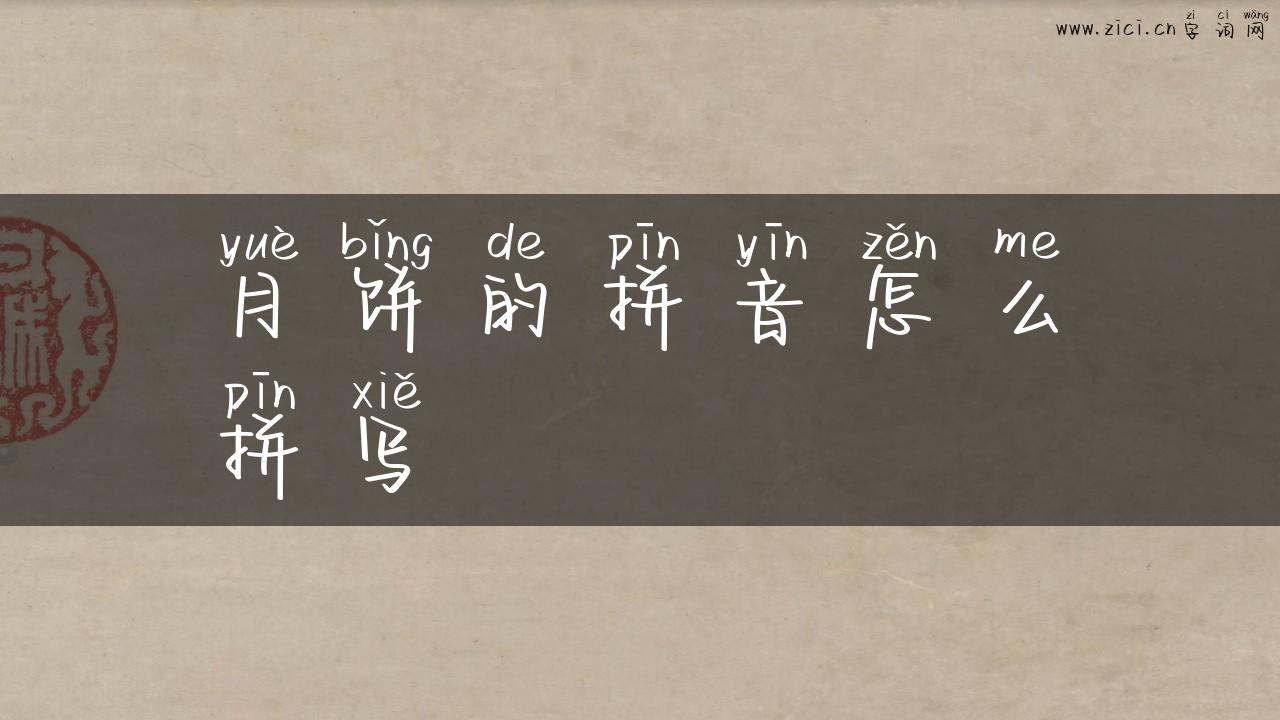 zì cí wǎng
www.zici.cn 字 词 网
yuè bǐng de pīn yīn zěn me
月 饼 的 拼 音 怎 么
pīn xiě
拼 写